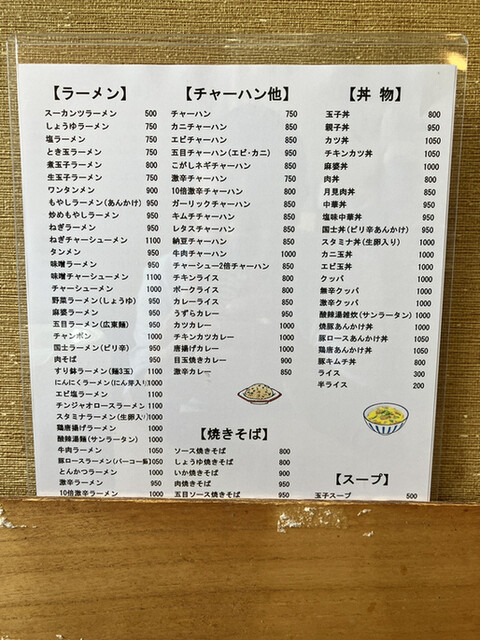 【ラーメン】
スーカンツラーメン 500
しょうゆラーメン 750
塩ラーメン 750
とき玉ラーメン 750
煮玉子ラーメン 800
生玉子ラーメン 750
ワンタンメン 900
もやしラーメン(あんかけ) 950
炒めもやしラーメン 950
ねぎラーメン 950
ねぎチャーシューメン 1100
タンメン 950
味噌ラーメン 950
味噌チャーシューメン 1100
チャーシューメン 1000
野菜ラーメン(しょうゆ) 950
麻婆ラーメン 950
五目ラーメン(広東麺) 950
チャンポン 1000
国士ラーメン(ピリ辛) 950
肉そば 950
すり鉢ラーメン(麺3玉) 1100
にんにくラーメン(にん芽入り) 1000
エビ塩ラーメン 1000
チンジャオロースラーメン 1000
スタミナラーメン(生卵入り) 1000
鶏唐揚げラーメン 1000
酸辣湯麺(サンラータン) 1000
牛肉ラーメン 1050
豚ロースラーメン(パーコー麺) 1050
とんかつラーメン 1000
激辛ラーメン 950
10倍激辛ラーメン 1000
【チャーハン他】
チャーハン 750
カニチャーハン 850
エビチャーハン 850
五目チャーハン(エビ・カニ) 950
こがしネギチャーハン 850
激辛チャーハン 850
10倍激辛チャーハン 900
ガーリックチャーハン 850
キムチチャーハン 850
レタスチャーハン 850
納豆チャーハン 850
牛肉チャーハン 1000
チャーシュー2倍チャーハン 1000
チキンライス 800
ポークライス 800
カレーライス 850
うずらカレー 950
カツカレー 1000
チキンカツカレー 1000
唐揚げカレー 1000
目玉焼きカレー 900
激辛カレー 850
【焼きそば】
ソース焼きそば 800
しょうゆ焼きそば 800
いか焼きそば 900
肉焼きそば 950
五目ソース焼きそば 950
【丼 物】
玉子丼 800
親子丼 950
カツ丼 1050
チキンカツ丼 1050
麻婆丼 1000
肉丼 800
月見肉丼 850
中華丼 950
塩味中華丼 950
国士丼(ピリ辛あんかけ) 950
スタミナ丼(生卵入り) 1000
カニ玉丼 1000
エビ玉丼 1000
クッパ 1000
無辛クッパ 1000
激辛クッパ 1000
酸辣湯雑炊(サンラータン) 1000
焼豚あんかけ丼 1050
豚ロースあんかけ丼 1050
鶏唐あんかけ丼 1050
豚キムチ丼 1000
ライス 300
半ライス 200
【スープ】
玉子スープ 500